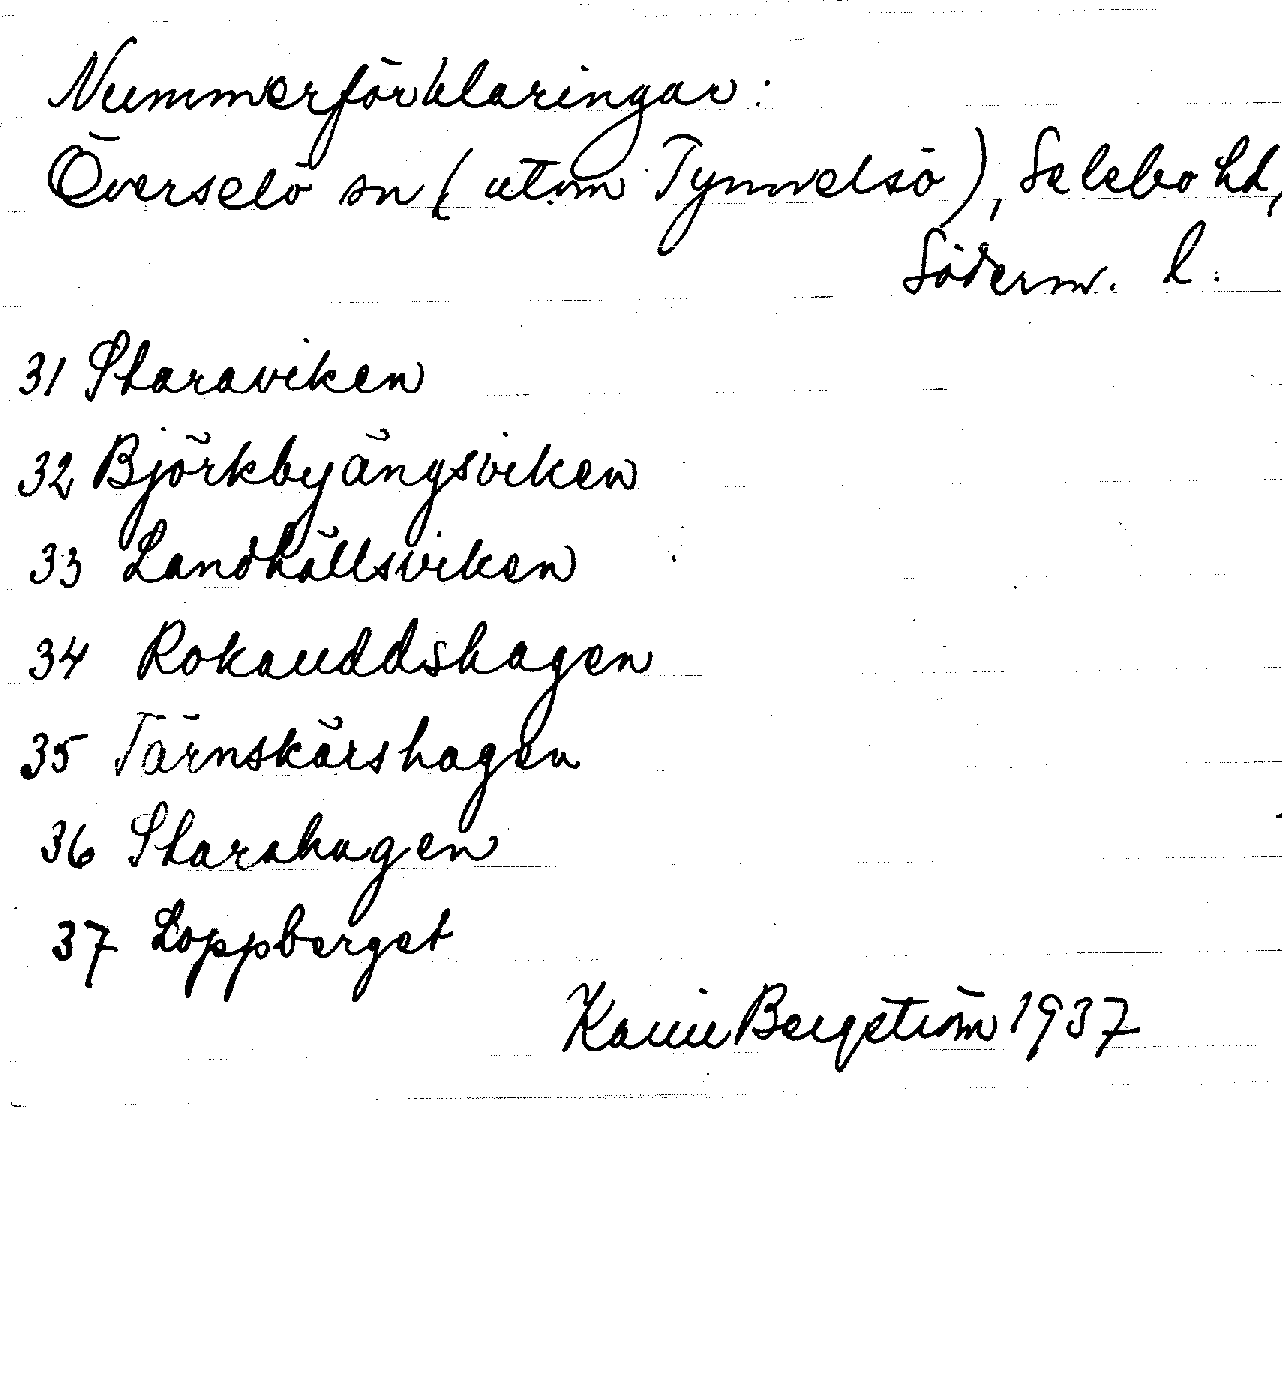 Nummerförklaringar:
Överselö sn (utom Tynnelsö), Selebo hd,
Söderm. l.
31 Skaraviken
32 Björkbyängsviken
33 Landhällsviken
34 Rokauddshagen
35 Tärnskärshagen
36 Skarahagen
37 Loppberget
Karin Bergström 1937